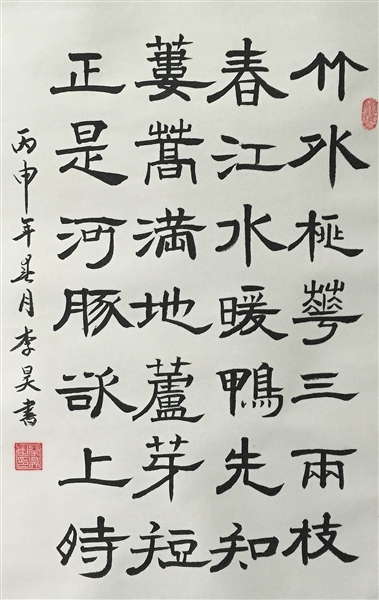 竹外桃華三兩枝
春江水暖鴨先知
蔞蒿滿地蘆芽短
正是河豚欲上時
丙申年春月李昊書